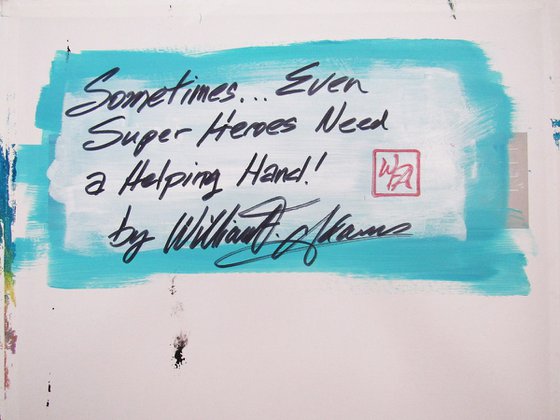 Sometimes... Even
Super Heroes Need
a Helping Hand!
WFA
by William F. Adams